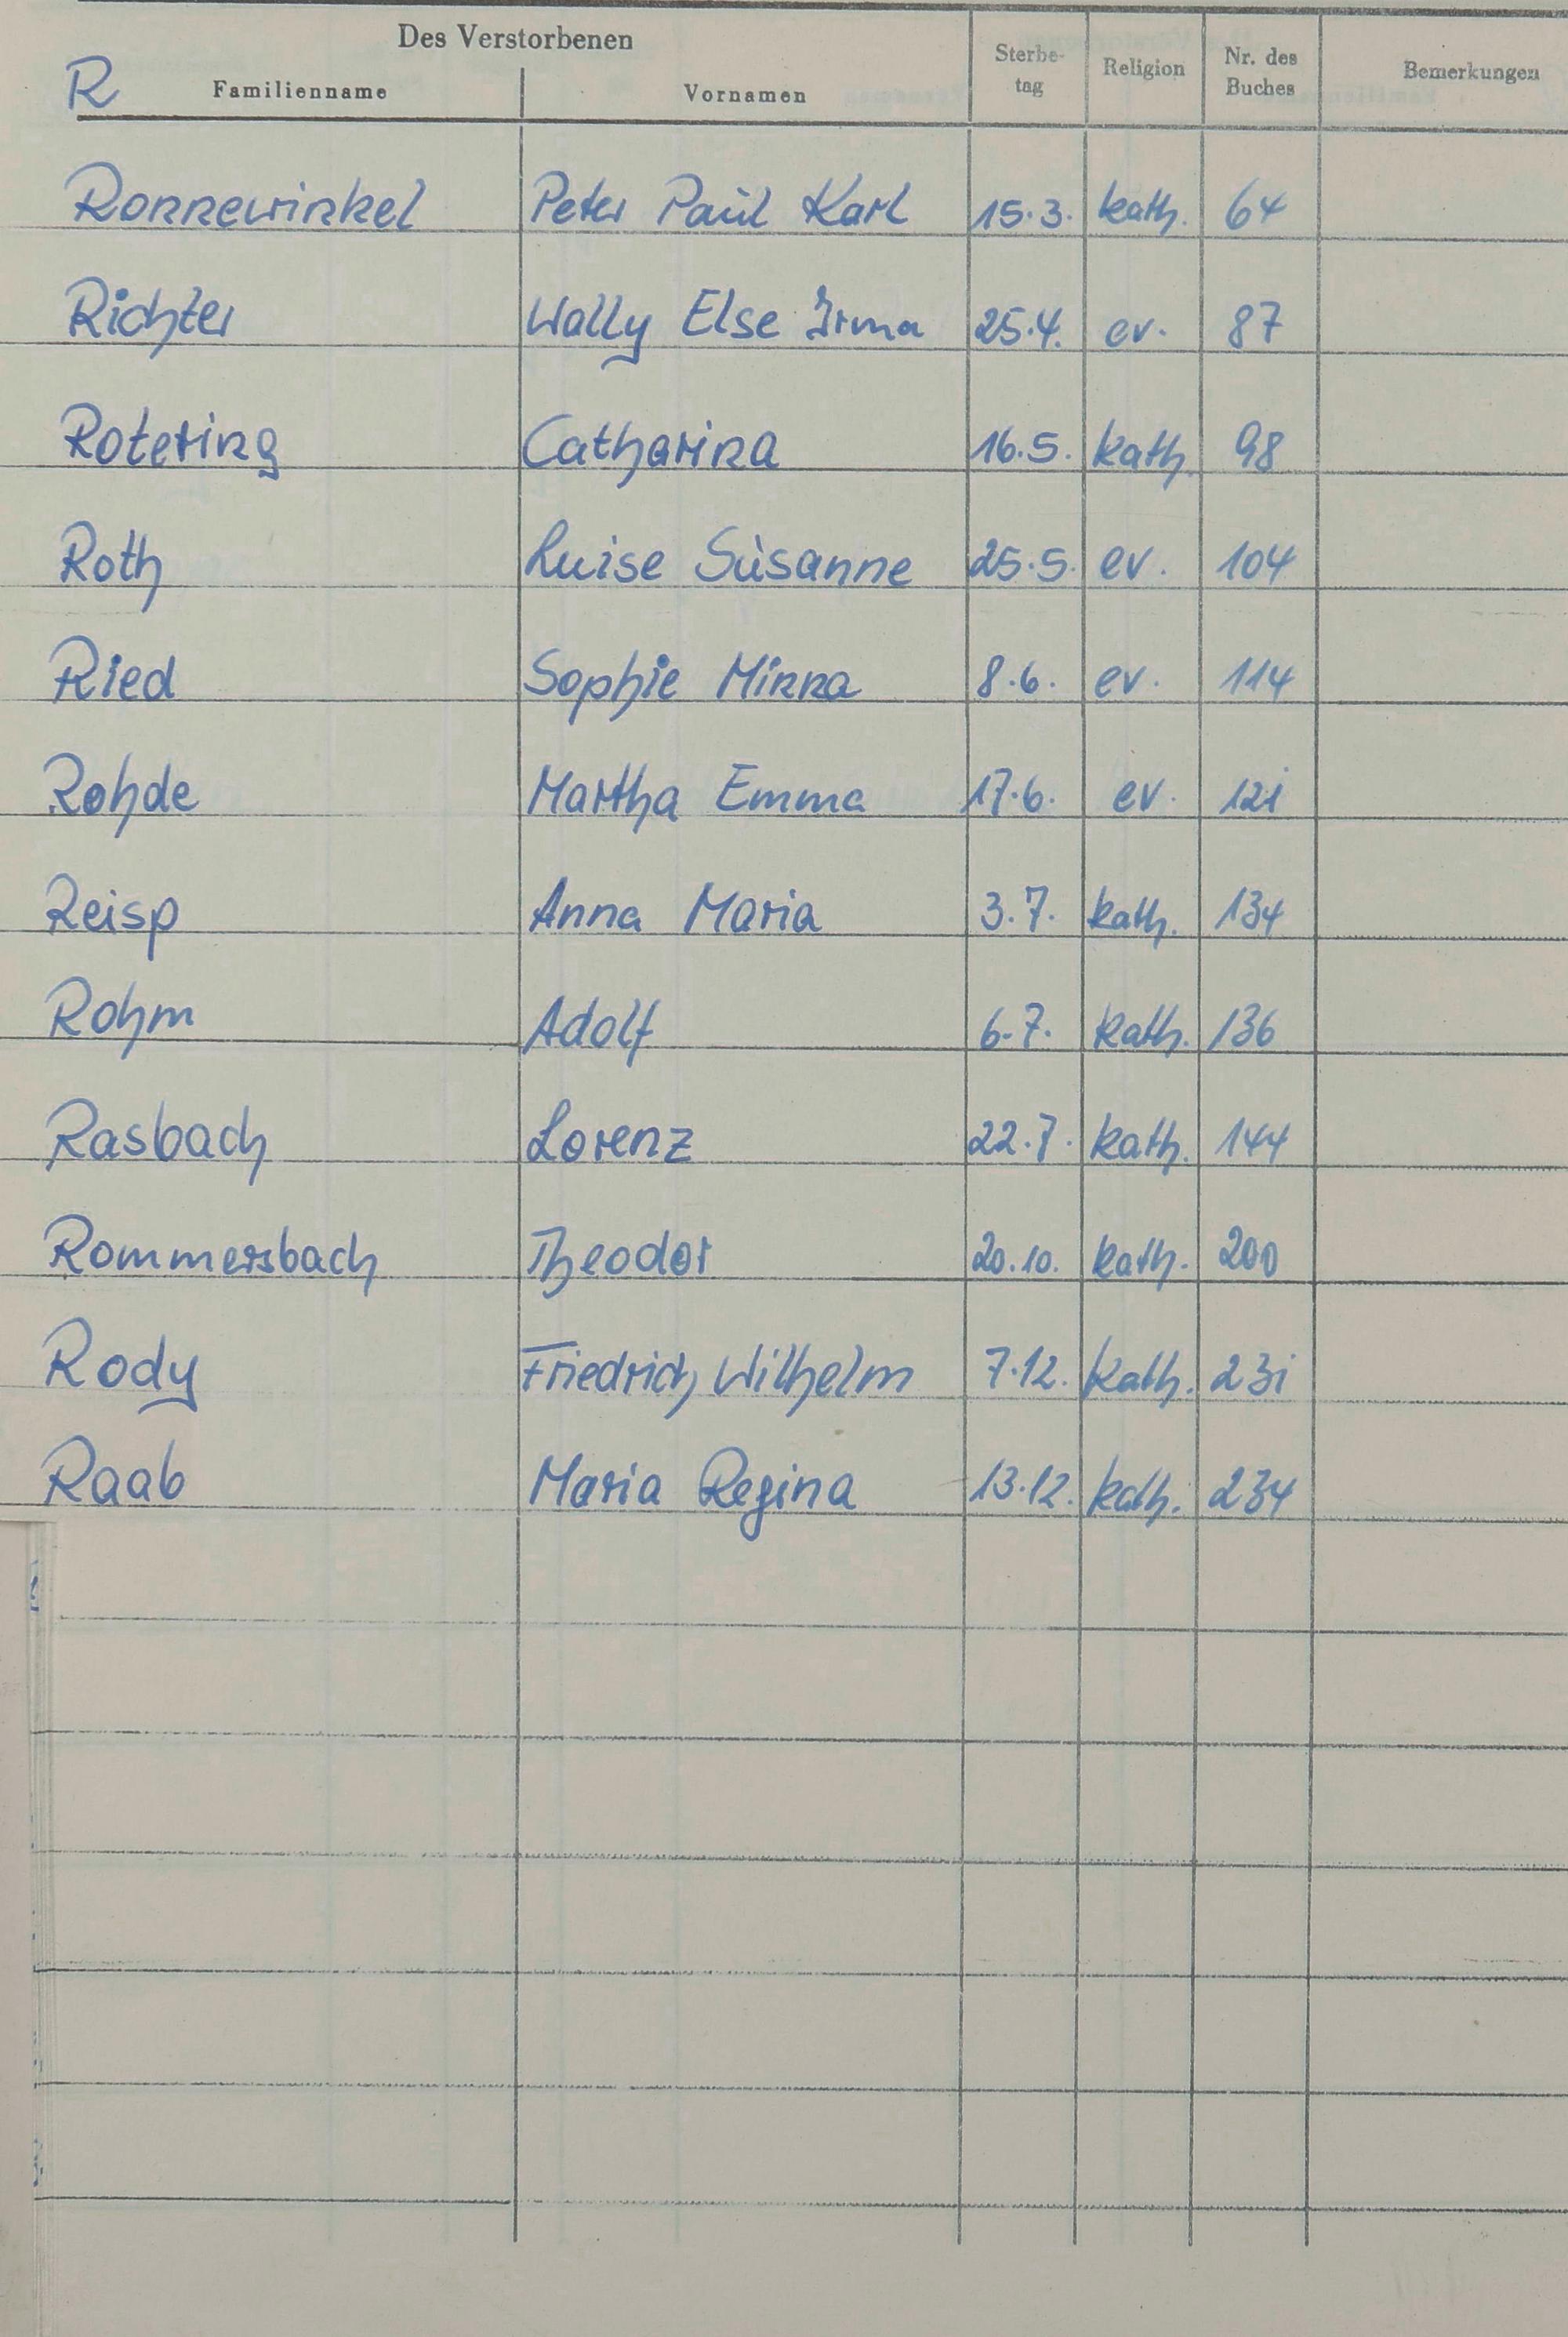 Des Verstorbenen
R Familienname Vornamen Sterbe-tag Religion Nr. des Buches Bemerkungen
Ronnewinkel Peter Paul Karl 15.3. kath. 64
Richter Wally Else Irma 25.4. ev. 87
Rotering Catharina 16.5. kath. 98
Roth Luise Susanne 25.5. ev. 104
Ried Sophie Minna 8.6. ev. 114
Rohde Martha Emma 17.6. ev. 121
Reisp Anna Maria 3.7. kath. 134
Rohm Adolf 6.7. kath. 136
Rasbach Lorenz 22.7. kath. 144
Rommersbach Theodor 20.10. kath. 200
Rody Friedrich Wilhelm 7.12. kath. 231
Raab Maria Regina 13.12. kath. 234